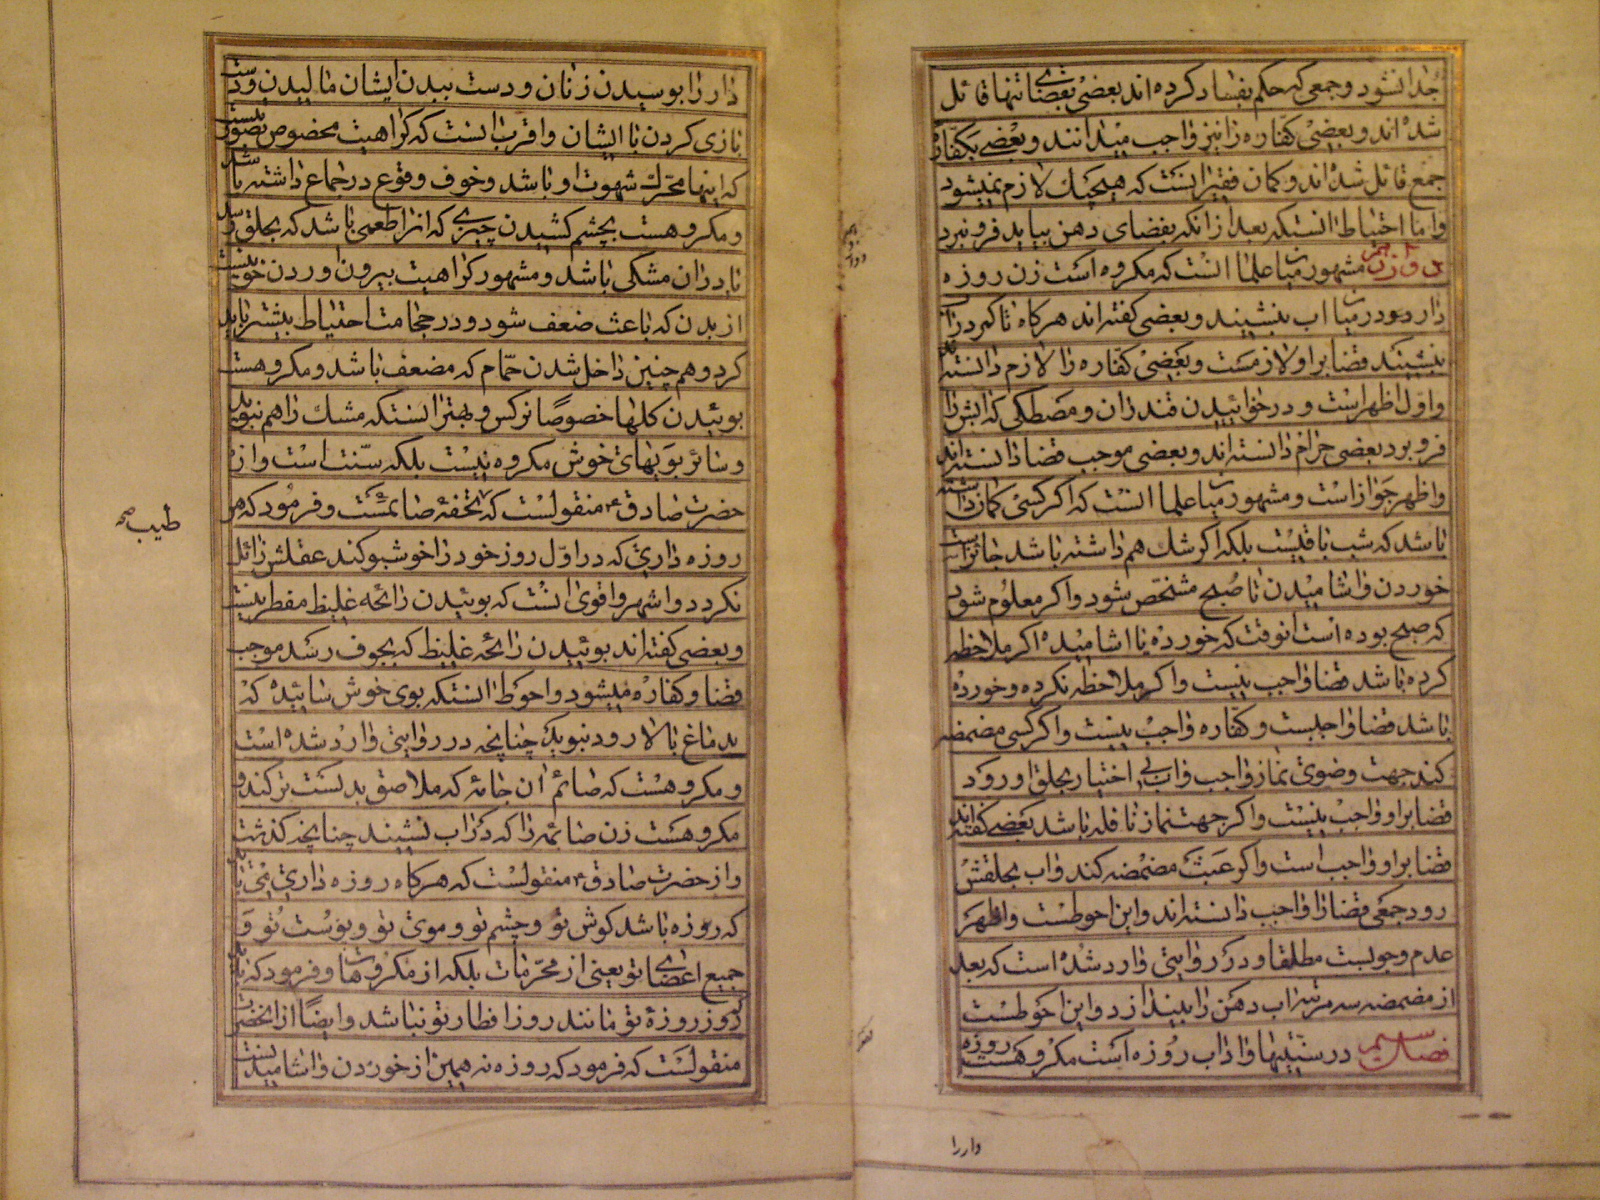 جدا نشود و جمعی که حکم بفساد کرده اند بعضی بقضای تنها قائل
شده اند و بعضی کفاره را نیز واجب میدانند و بعضی بکفاره
جمع قائل شده اند و کمان فقیر اینست که هیچیک لازم نمیشود
و اما احتیاط انستکه بعد از انکه بفضای دهن بیاید فرو نبرد
مشهور میان علما انست که مکروه است زن روزه
دار دود در میان اب بنشیند و بعضی کفته اند هرکاه تا کمر در اب
بنشیند قضا بر او لازمست و بعضی کفاره را لازم دانسته
و اول اظهر است و در خوائیدن قندران و مصطکی که ابش را
فرو برد بعضی حرام دانسته اند و بعضی موجب قضا دانسته اند
و اظهر جواز است و مشهور میان علما انست که اکر کسی کمان داشته
باشد که شب باقیست بلکه اکر شک هم داشته باشد جائز است
خوردن و اشامیدن تا صبح مشخص شود و اکر معلوم شود
که صبح بوده است انوقت که خورده یا اشامیده اکر ملاحظه
کرده باشد قضا واجب نیست و اکر ملاحظه نکرده و خورده
باشد قضا واجبست و کفاره واجب نیست و اکر کسی مضمضه
کند جهت وضوی نماز واجب و اب بی اختیار بحلق او رود
قضا بر او واجب نیست و اکر جهت نماز نافله باشد بعضی کفته اند
قضا بر او واجب است و اکر عبث مضمضه کند و اب بحلقش
رود جمعی قضا را واجب دانسته اند و این احوطست و اظهر
عدم وجوبست مطلقا و در روایتی وارد شده است که بعد
از مضمضه سه مرتبه اب دهن را بیندازد و این احوطست
فصل سیم در سنتیها و اداب روزه است مکروهست روزه
دار را
دار را بوسیدن زنان و دست ببدن ایشان مالیدن و دست
بازی کردن با ایشان و اقرب انست که کراهیت مخصوص بصورتیست
که اینها محرک شهوت او باشد و خوف وقوع در جماع داشته باشد
و مکروهست بچشم کشیدن چیزی که انرا طعمی باشد که بحلق رسد
یا در ان مشکی باشد و مشهور کراهیت بیرون اوردن خونیست
از بدن که باعث ضعف شود و در حجامت احتیاط بیشتر باید
کرد و هم چنین داخل شدن حمام که مضعف باشد و مکروهست
بوئیدن کلها خصوصا نرکس و بهتر انستکه مشک را هم نبویند
و سائر بویهای خوش مکروه نیست بلکه سنت است و از
حضرت صادق ع منقولست که تحفهٔ صائمست و فرمود که هر
طیب صح
روزه داری که در اول روز خود را خوشبو کند عقلش زائل
نکردد و اشهر و اقوی انست که بوئیدن رائحه غلیظ مفطر نیست
و بعضی کفته اند بوئیدن رائحه غلیظ که بجوف رسد موجب
قضا و کفاره میشود و احوط انستکه بوی خوش سائیده که
بدماغ بالا رود نبوید چنانچه در روایتی وارد شده است
و مکروهست که صائم ان جامهٔ که ملاصق بدنست تر کند و
مکروهست زن صائمه را که در اب نشیند چنانچه کذشت
و از حضرت صادق ع منقولست که هرکاه روزه داری می باید
که روزه باشد کوش تو و چشم تو و موی تو و پوست تو و
جمیع اعضای تو یعنی از محرمات بلکه از مکروهات و فرمود که باید
که روز روزهٔ تو مانند روز افطار تو نباشد و ایضا از انحضرت
منقولست که فرمود که روزه نه همین از خوردن و اشامیدنست